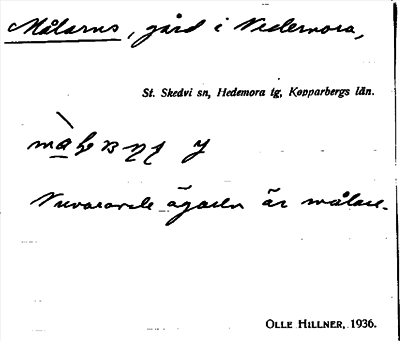 Målarns, gård i Nedernora,
St. Skedvi sn, Hedemora tg, Kopparbergs län.
Nuvarande ägaren är målare.
OLLE HILLNER, 1936.